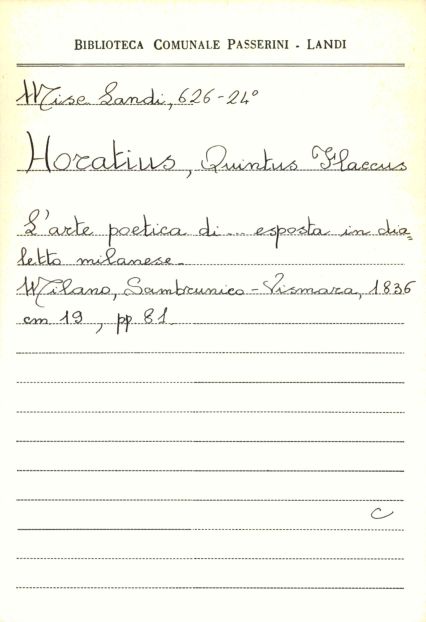 BIBLIOTECA COMUNALE PASSERINI - LANDI
Misc Landi, 626-24°
Horatius, Quintus Flaccus
L'arte poetica di... esposta in dia=
letto milanese.
Milano, Sambrunico-Vismara, 1836
cm 19, pp 81.
C